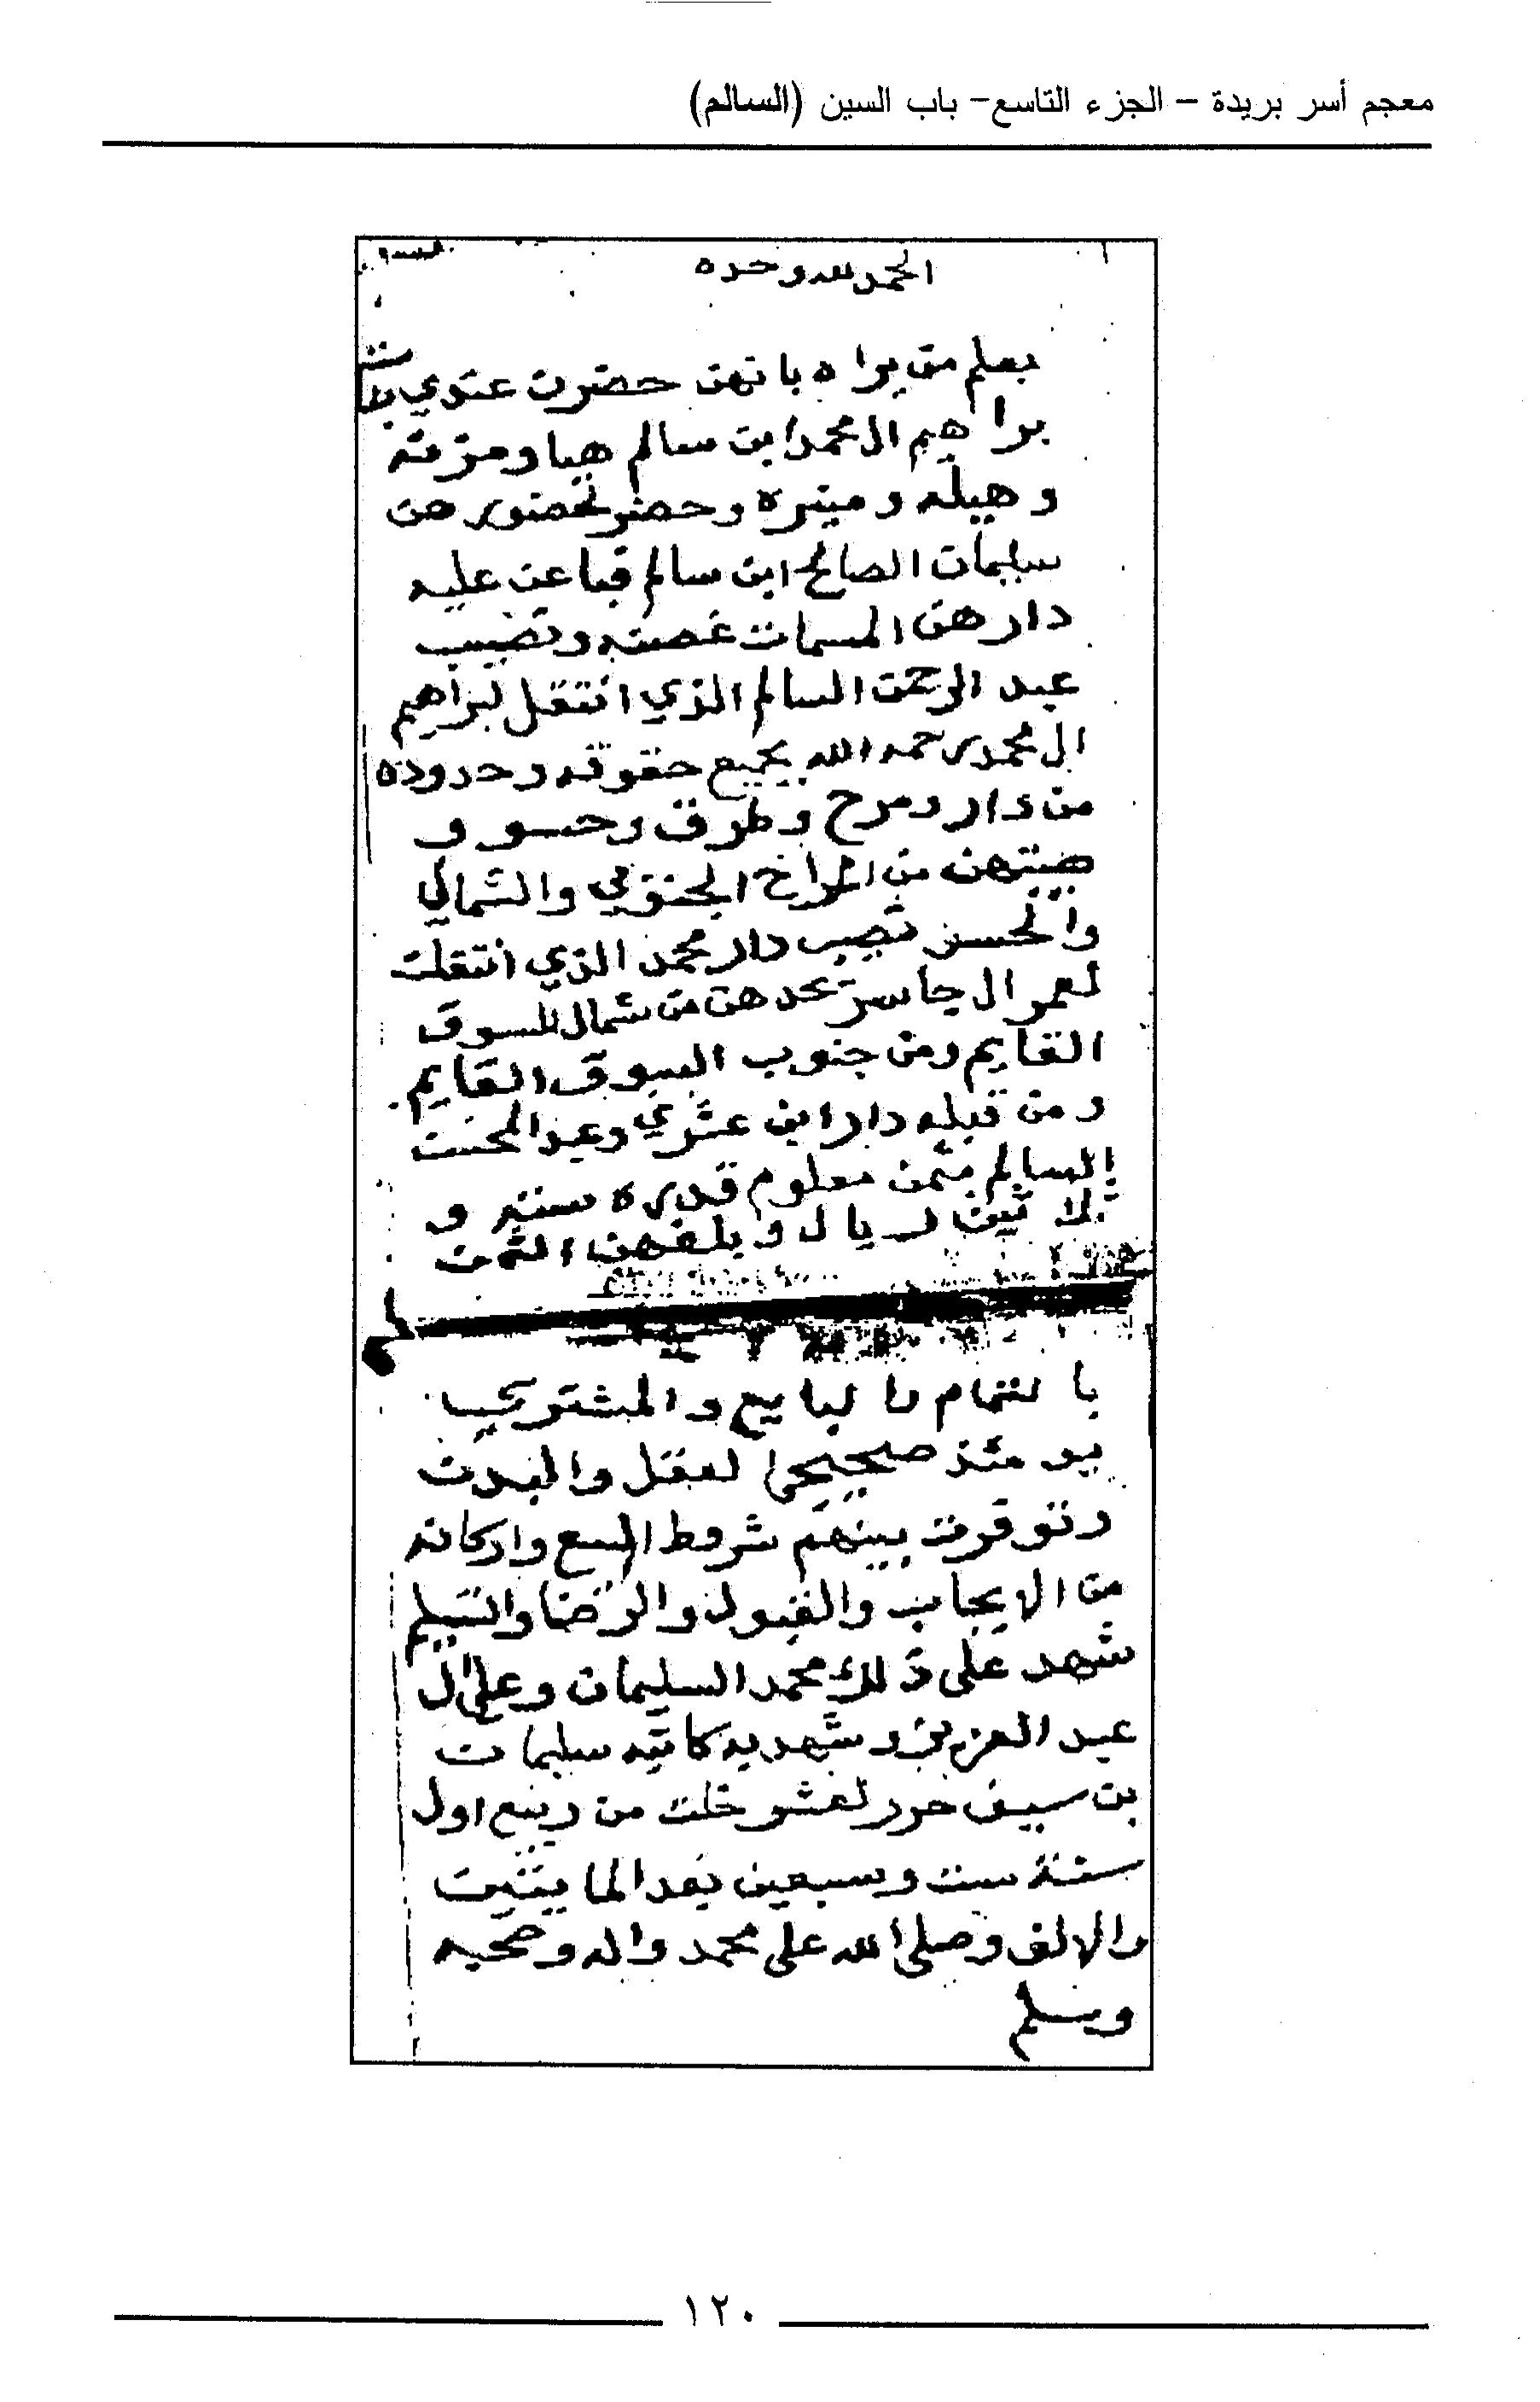 معجم أسر بريدة – الجزء التاسع– باب السين (السالم)
الحمد لله وحده
يعلم من يراه بانهن حضرن عندي
براهيم ال محمد ابن سالم هيا ومزنه
وهيله ومنيره وحضر لحضورهن
سليمان الصالح ابن سالم فباعن عليه
دارهن المسمات ونصيب
عبد الرحمن السالم الذي انتقل لبراهيم
ال محمد رحمه الله بجميع حقوقه وحدوده
من دار ومرح وطرق وحسو و
من الجنوبي والشمالي
والحسن نصيب دار محمد الذي انتقلت
لعمر ال جاسر يحدهن من شمال السوق
القايم ومن جنوب السوق القايم
ومن قبله دار ابن عشري وعبد المحسن
السالم بثمن معلوم قدره ستة و
ثلاثين ريال وبلغهن الثمن
بالتمام والبايع والمشتري
يومئذ صحيحي العقل والبدن
وتوفرت بينهم شروط البيع واركانه
من الايجاب والقبول والرضا والتسليم
شهد على ذلك محمد السليمان وعلي ال
عبد العزيز وشهد به كاتبه سليمان
بن سيف حرر لعشر خلت من ربيع اول
سنة ست وسبعين بعد المايتين
والالف وصلى الله على محمد واله وصحبه
وسلم
١٢٠